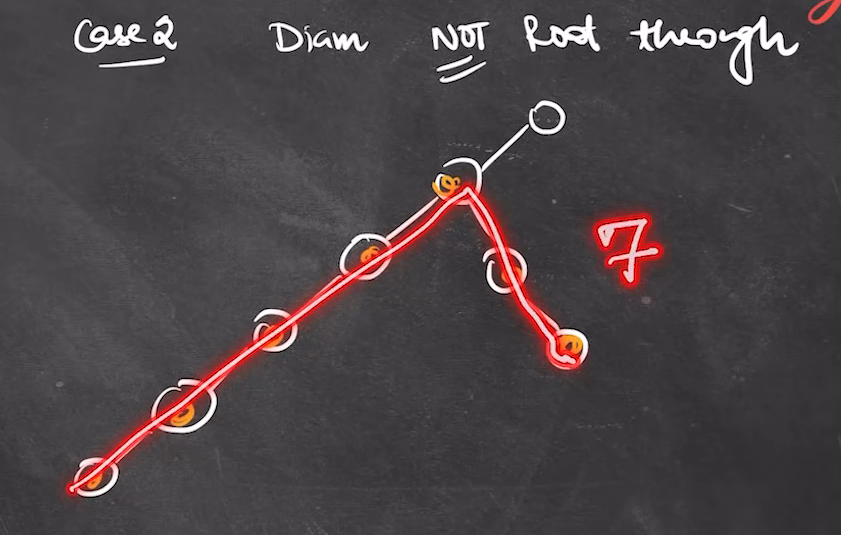 Case 2 Diam NOT Root through
7